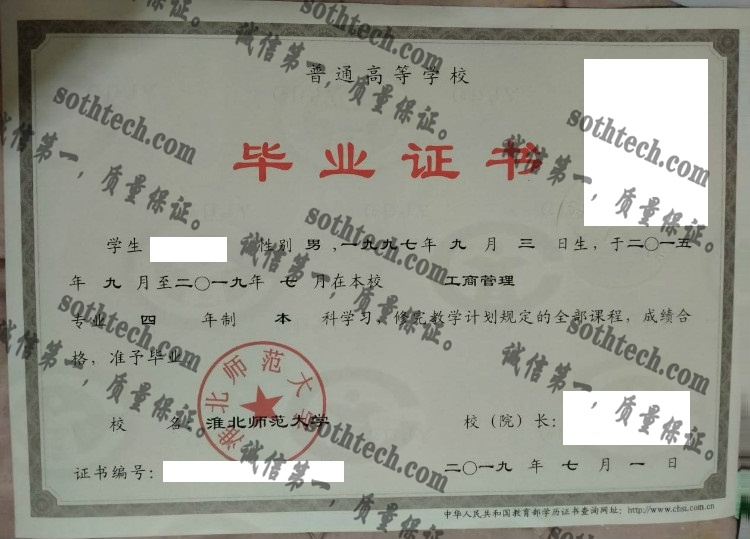 普通高等学校
毕业证书
学生 性别 男 ,一九九七年 九 月 三 日生，于二〇一五
年 九 月至二〇一九年 七 月在本校 工商管理
专业 四 年制 本 科学习、修完教学计划规定的全部课程，成绩合
格，准予毕业
淮北师范大学
校 名: 淮北师范大学 校（院）长:
证书编号: 二〇一九 年 七 月 一 日
中华人民共和国教育部学历证书查询网址: http://www.chsi.com.cn
sothtech.com
诚信第一，质量保证。
sothtech.com
诚信第一，质量保证。
sothtech.com
诚信第一，质量保证。
sothtech.com
诚信第一，质量保证。
sothtech.com
诚信第一，质量保证。
sothtech.com
诚信第一，质量保证。
sothtech.com
诚信第一，质量保证。
sothtech.com